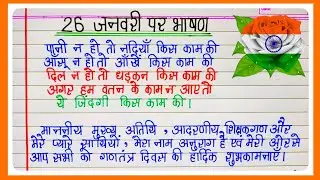 26 जनवरी पर भाषण
पानी न हो तो नदियाँ किस काम की
आँसू न हो तो आँखें किस काम की
दिल न हो तो धड़कन किस काम की
अगर हम वतन के काम न आए तो
ये जिंदगी किस काम की।
माननीय मुख्य अतिथि, आदरणीय शिक्षकगण और
मेरे प्यारे साथियों, मेरा नाम अनुराग है एवं मेरी ओर से
आप सभी को गणतंत्र दिवस की हार्दिक शुभकामनाएं।